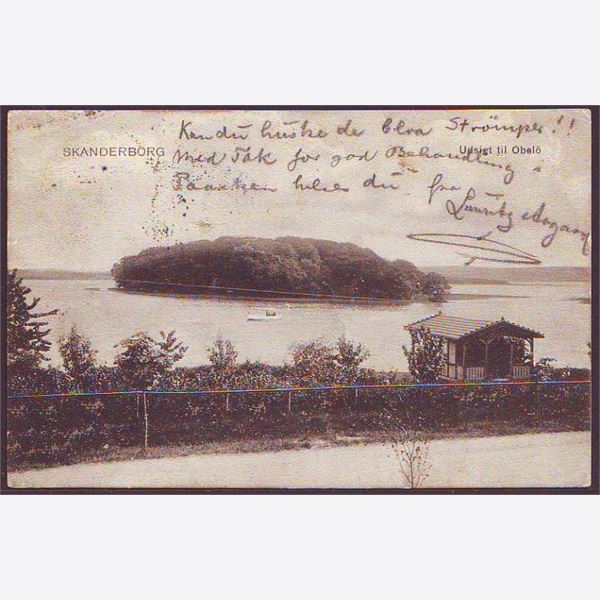 Kan du huske de blra Strömper!!
SKANDERBORG
Med Tak for god Behandling
Udsigt til Obelö
hilses du fra
Lauritz Aagaard